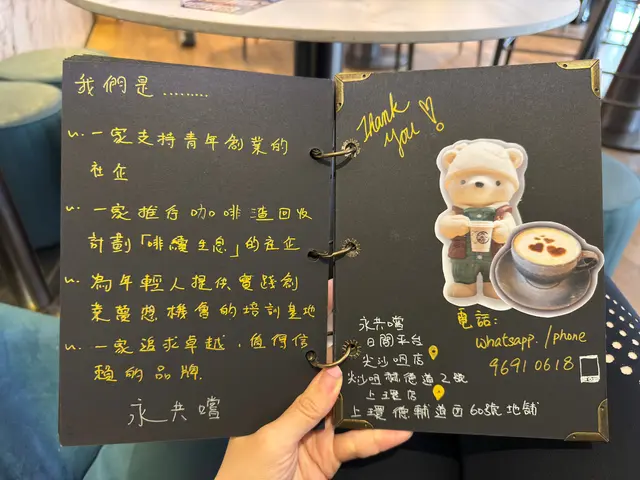 我們是.........
一家支持青年創業的
社企
一家推存咖啡渣回收
計劃「啡續生息」的社企
為年輕人提供實踐創
業夢想機會的培訓基地
一家追求卓越,值得信
賴的品牌.
永共嚐
Thank
you!
電話:
whatsapp./phone
96910618
永共嚐
日間平台
尖沙咀店
尖沙咀棉德道2號
上環店
上環德輔道西60號地舖